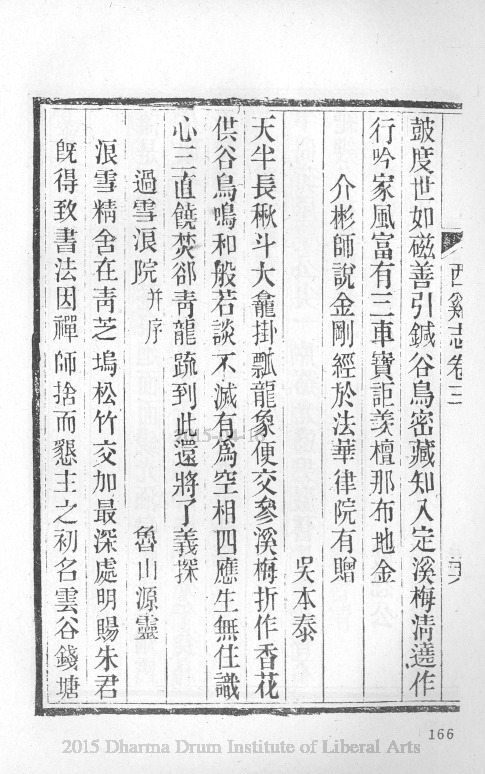 西谿志卷三
鼓度世如磁善引鍼谷鳥密藏知入定溪梅清遶作
行吟家風富有三車寶詎羡檀那布地金
介彬師說金剛經於法華律院有贈
吳本泰
天半長楸斗大龕掛瓢龍象便交參溪梅折作香花
供谷鳥鳴和般若談不滅有爲空相四應生無住識
心三直饒焚郤靑龍䟽到此還將了義探
過雪浪院并序
魯山源靈
浪雪精舍在靑芝塢松竹交加最深處明賜朱君
旣得致書法因禪師捨而懇主之初名雲谷錢塘
166
2015 Dharma Drum Institute of Liberal Arts